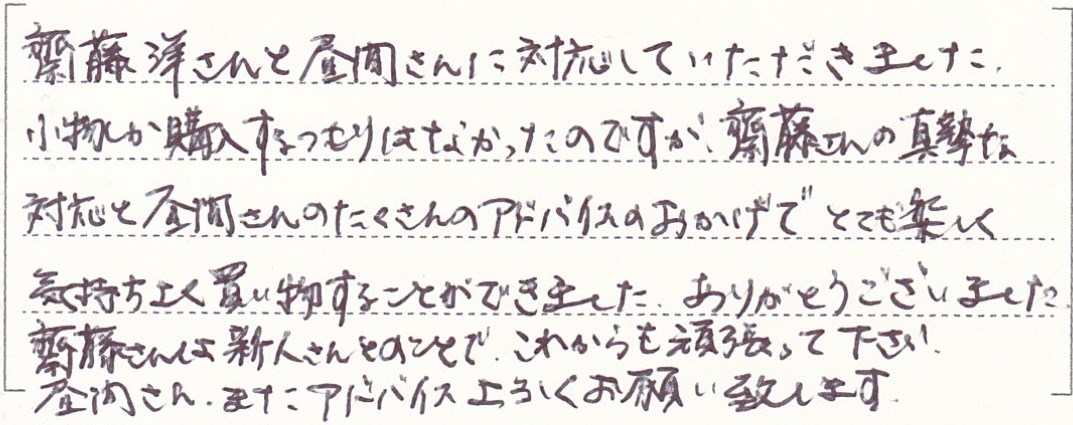 齋藤洋さんと昼間さんに対応していただきました.
小物しか購入するつもりはなかったのですが、齋藤さんの真摯な
対応と昼間さんのたくさんのアドバイスのおかげでとても楽しく
気持ちよく買い物することができました. ありがとうございました.
齋藤さんは新人さんとのことで、これからも頑張って下さい.
昼間さん、またアドバイスよろしくお願い致します.